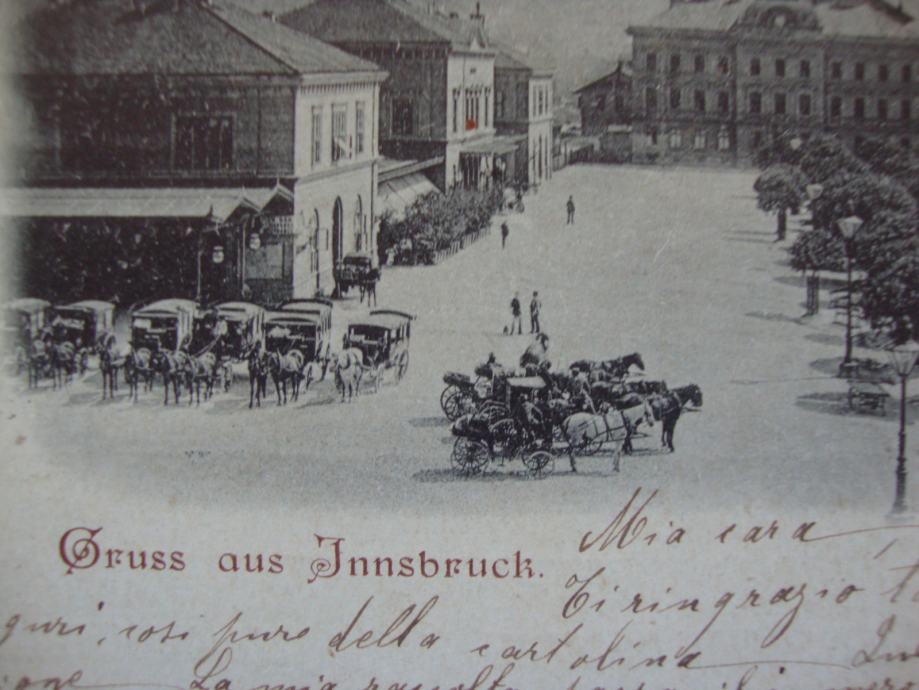 Gruss aus Innsbruck.
Mia cara
Ti ringrazio
guri, così pure della cartolina
La mia